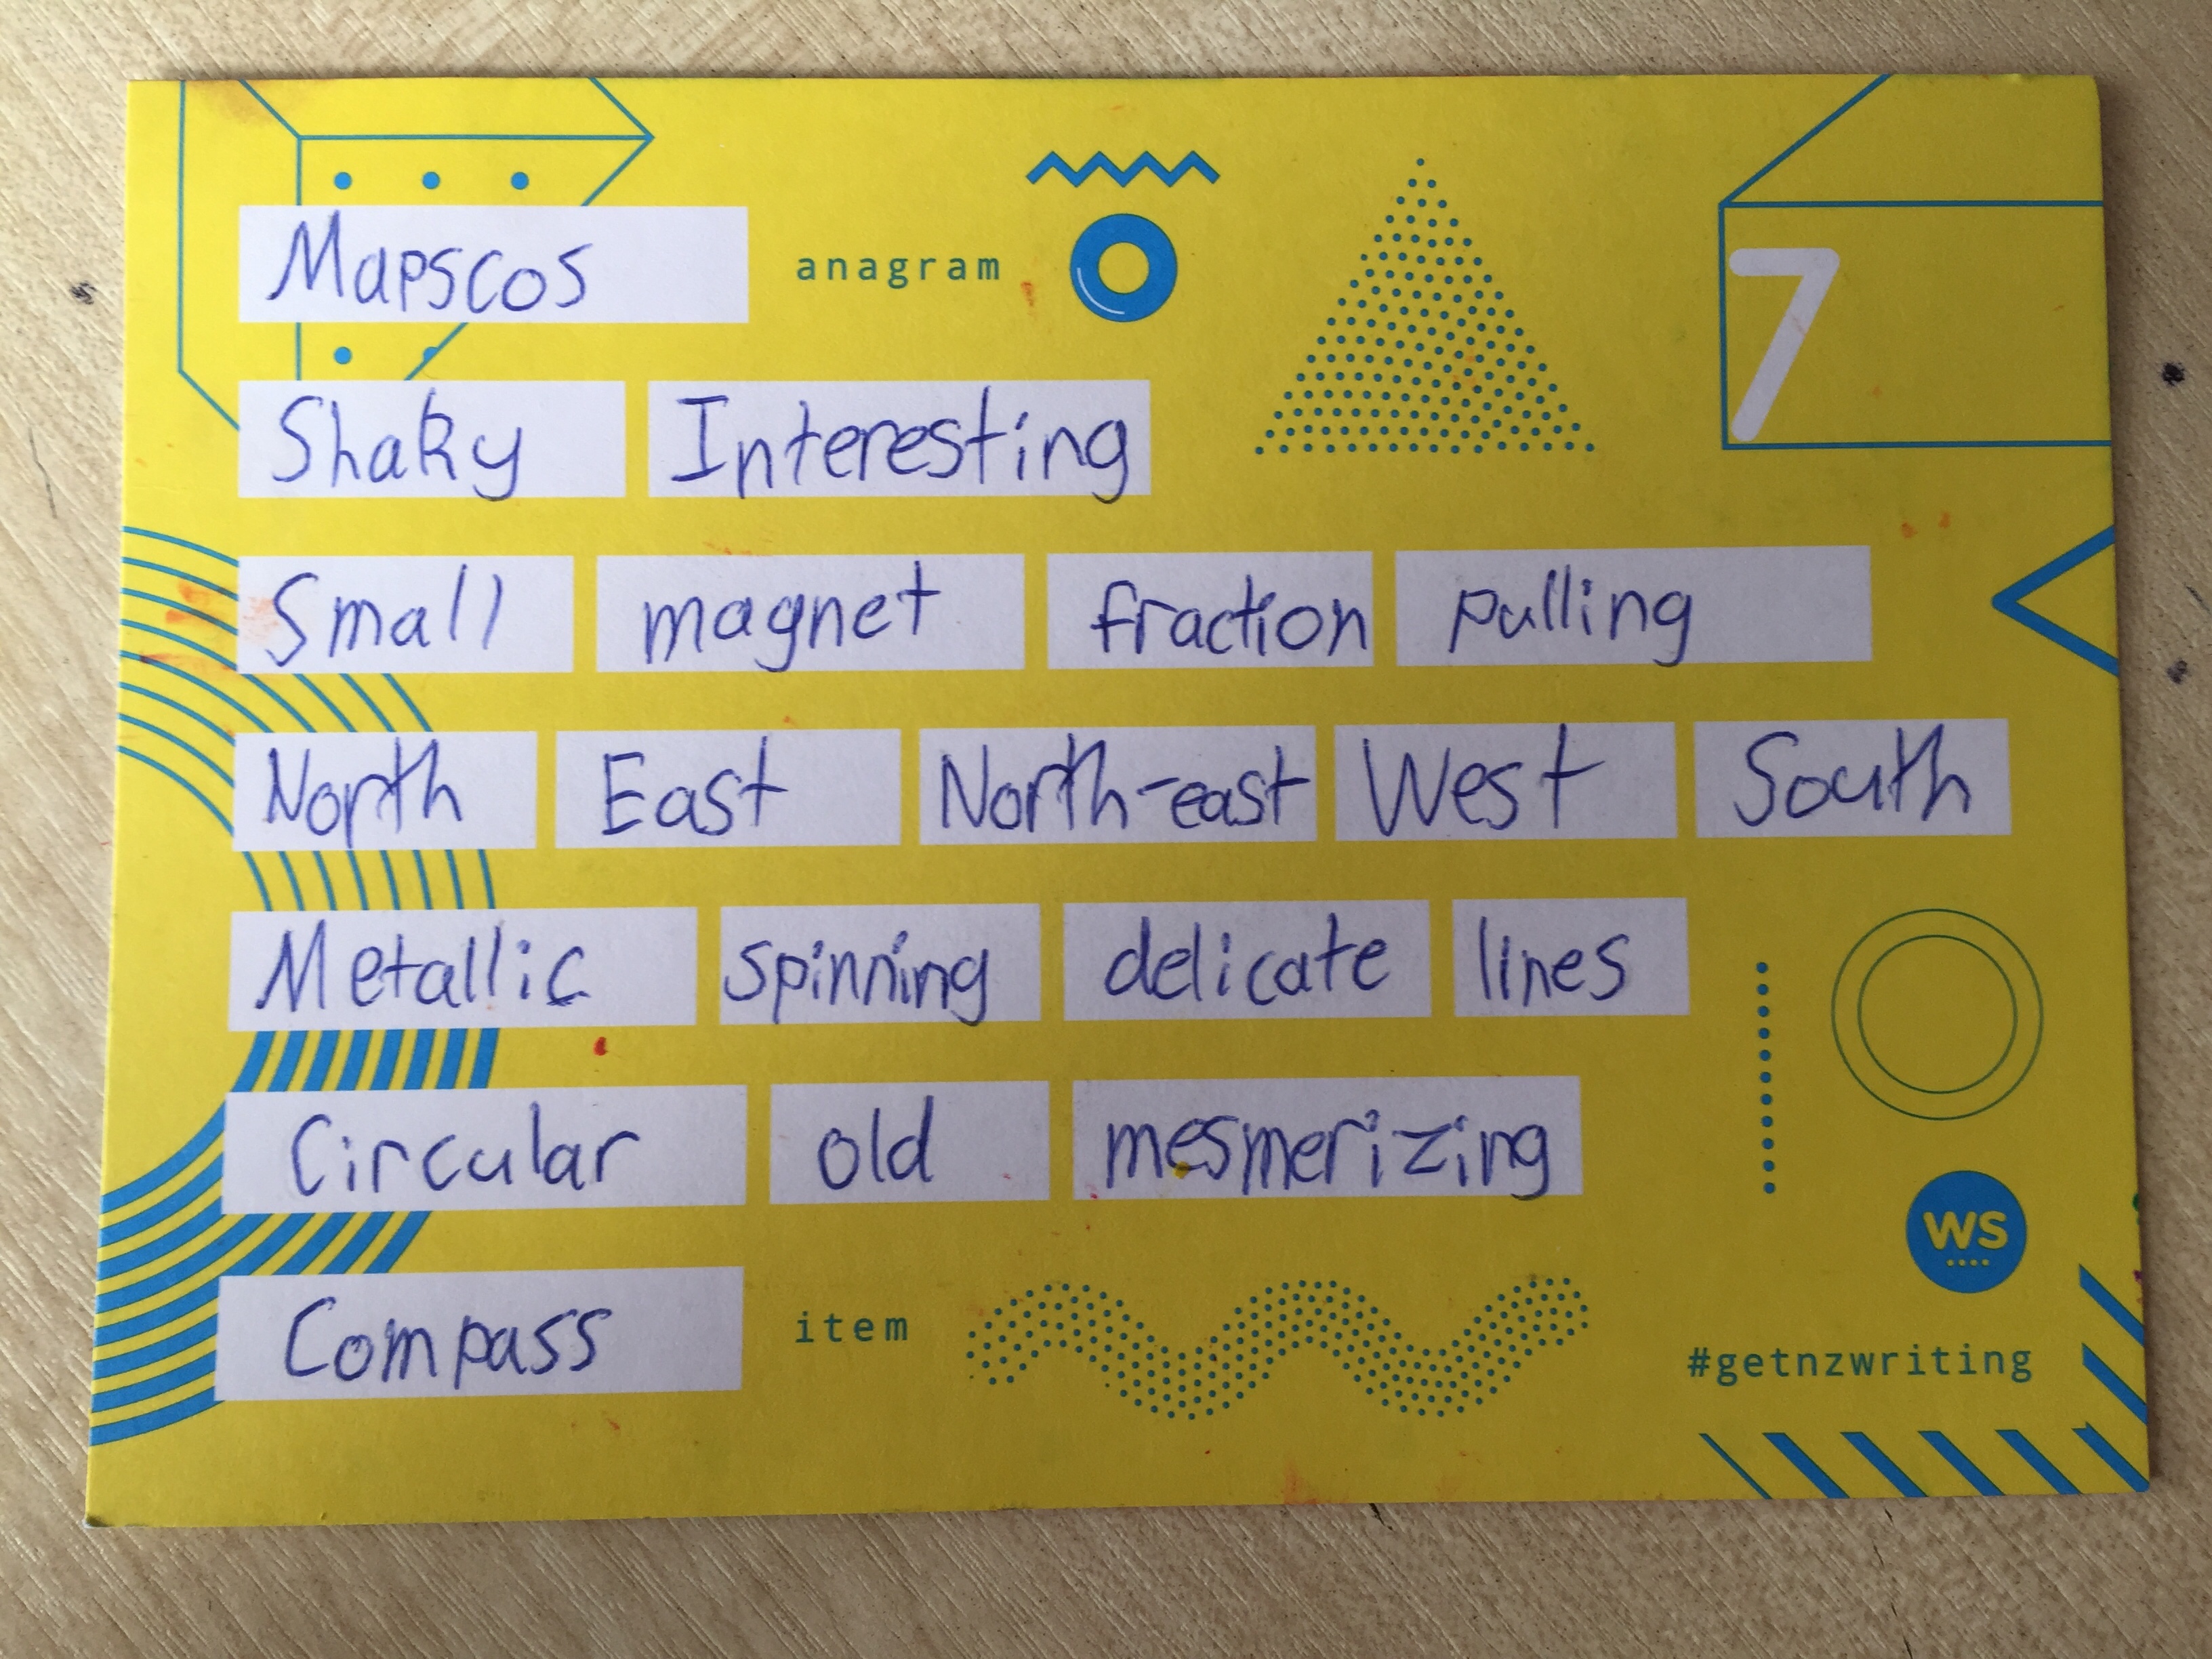 Mapscos anagram
7
Shaky Interesting
Small magnet fraction pulling
North East North-east West South
Metallic spinning delicate lines
Circular old mesmerizing
WS
Compass item
#getnzwriting